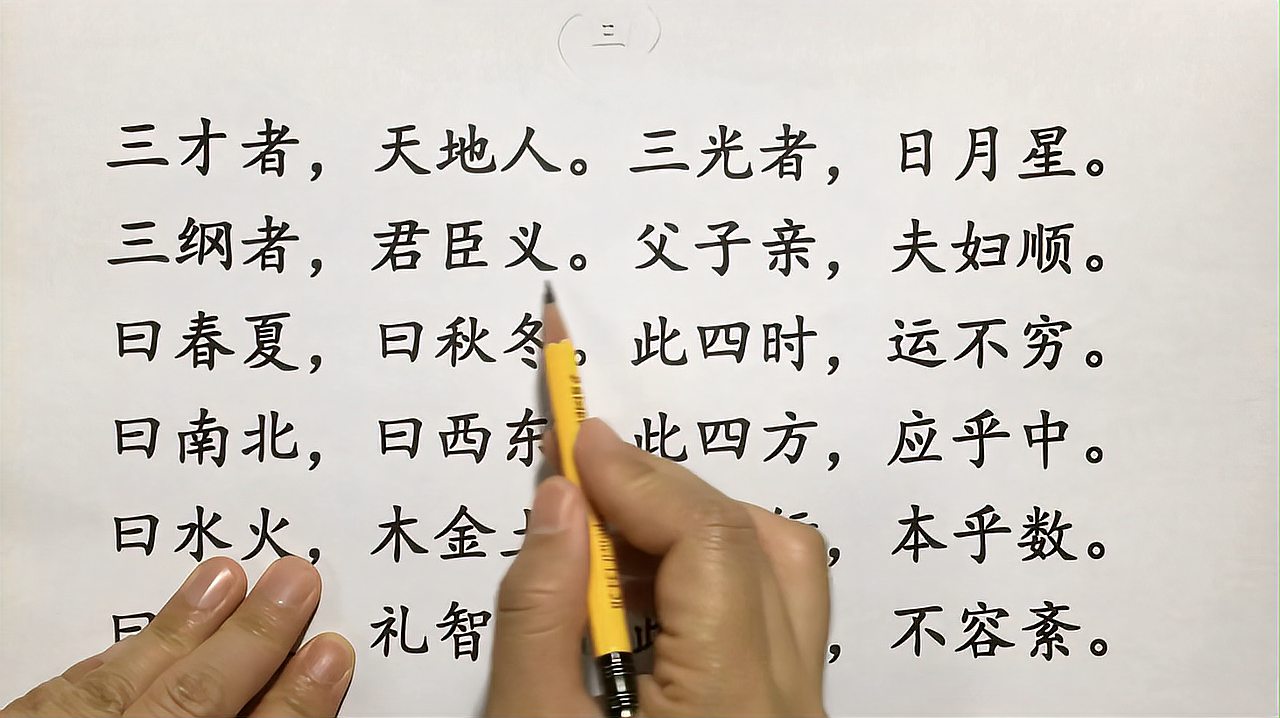 (三)
三才者，天地人。三光者，日月星。
三纲者，君臣义。父子亲，夫妇顺。
曰春夏，曰秋冬。此四时，运不穷。
曰南北，曰西东 此四方，应乎中。
曰水火，木金土 行，本乎数。
曰 礼智 此 ，不容紊。